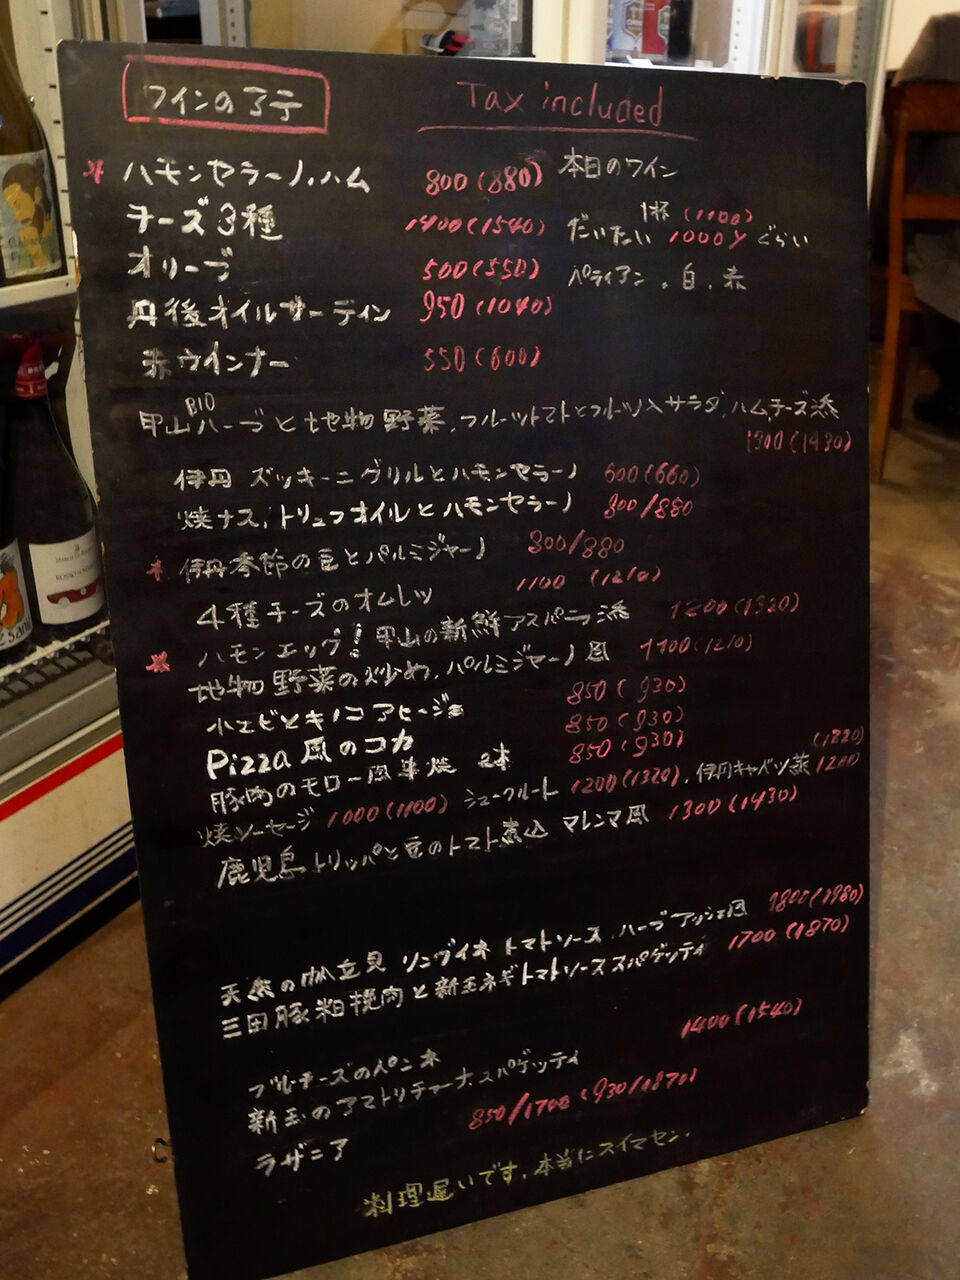 ワインのアテ Tax included
ハモンセラーノ.ハム 800(880)
チーズ3種 1400(1540)
オリーブ 500(550)
丹後オイルサーディン 950(1040)
赤ウインナー 550(600)
本日のワイン
1杯 (1100)
だいたい 1000y ぐらい
ペティアン.白.赤
BIO
甲山ハーブと地物野菜.フルーツトマトとフルーツ入サラダ.ハムチーズ添
1300(1430)
伊丹 ズッキーニグリルとハモンセラーノ 600(660)
焼ナス.トリュフオイルとハモンセラーノ 800/880
伊丹季節の豆とパルミジャーノ 800/880
4種チーズのオムレツ 1100 (1210)
ハモンエッグ!甲山の新鮮アスパラ添 1200(1320)
地物野菜の炒め.パルミジャーノ風 1100(1210)
小エビとキノコアヒージョ 850(930)
Pizza風のコカ 850(930)
豚肉のモロー風串焼 2本 850(930)
焼ソーセージ 1000(1100) シュークルート 1200(1320).伊丹キャベツ蒸 1200
(1320)
鹿児島トリッパと豆のトマト煮込 マレンマ風 1300(1430)
天然の帆立貝 リングイネ トマトソース.ハーブアッシェ風 1800(1980)
三田豚粗挽肉と新玉ネギトマトソーススパゲッティ 1700(1870)
ブルーチーズのペンネ 1400(1540)
新玉のアマトリチャーナスパゲッティ
ラザニア 850/1700(930/1870)
料理遅いです.本当にスイマセン.